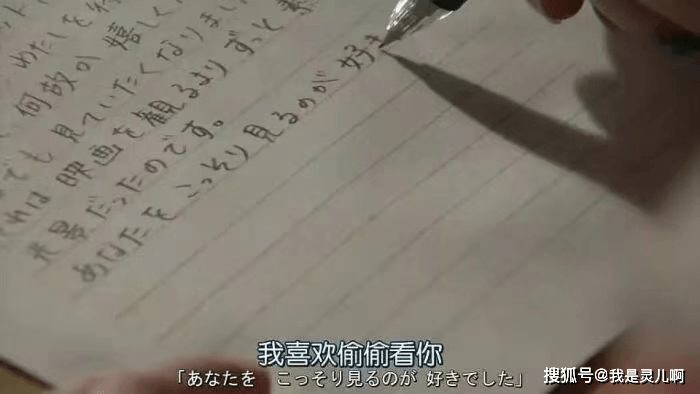 めたしを
何故か 嬉しく
ても 見ていたくなりまし
れは 映画を観るより ずっと 素
光景だったのです。
あなたを こっそり 見るのが 好き
我喜欢偷偷看你
「あなたを こっそり見るのが 好きでした」
搜狐号@我是灵儿啊